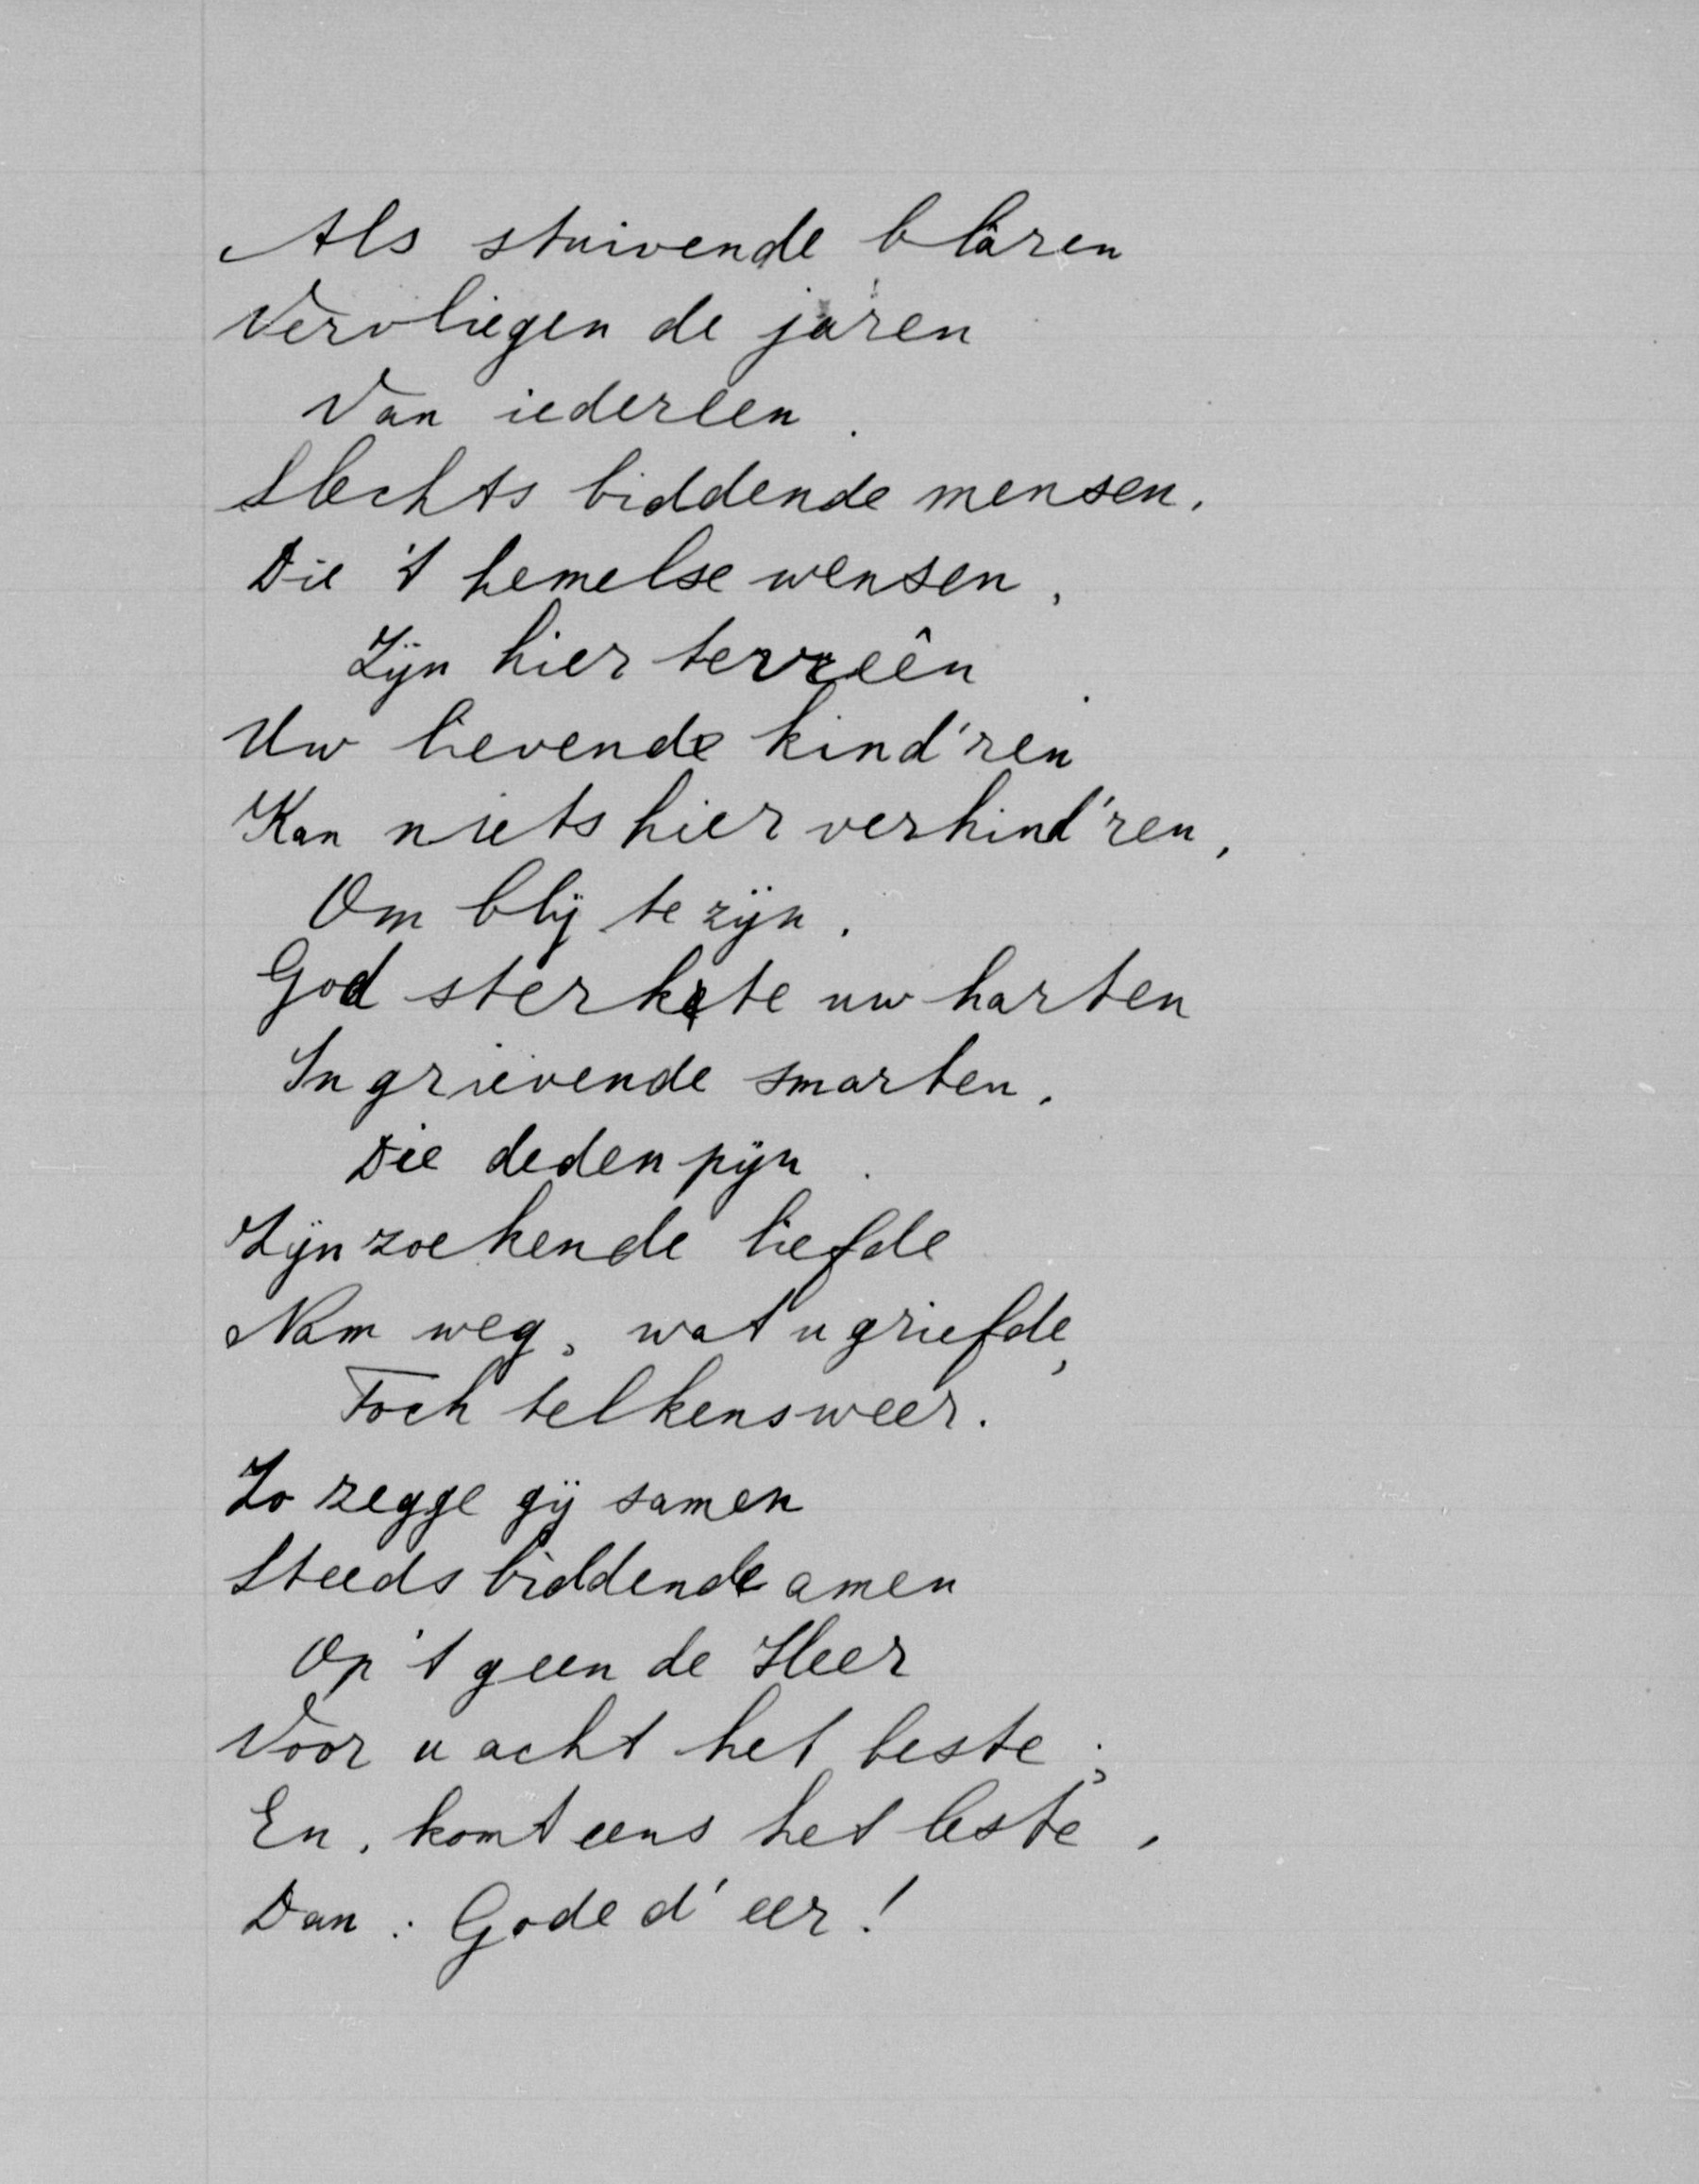 Als stuivende blâren
Vervliegen de jaren
Van iedereen.
Slechts biddende mensen,
Die 't hemelse wensen,
Zijn hier tevreên.
Uw lievende kind'ren
Kan niets hier verhind'ren,
Om blij te zijn.
God sterkte uw harten
In grievende smarten,
Die deden pijn.
Zijn zoekende liefde
Nam weg, wat u griefde,
Toch telkens weer.
Zo zegge gij samen
Steeds biddende amen
Op 't geen de Heer
Voor u acht het beste;
En, komt eens het leste,
Dan: Gode d' eer!